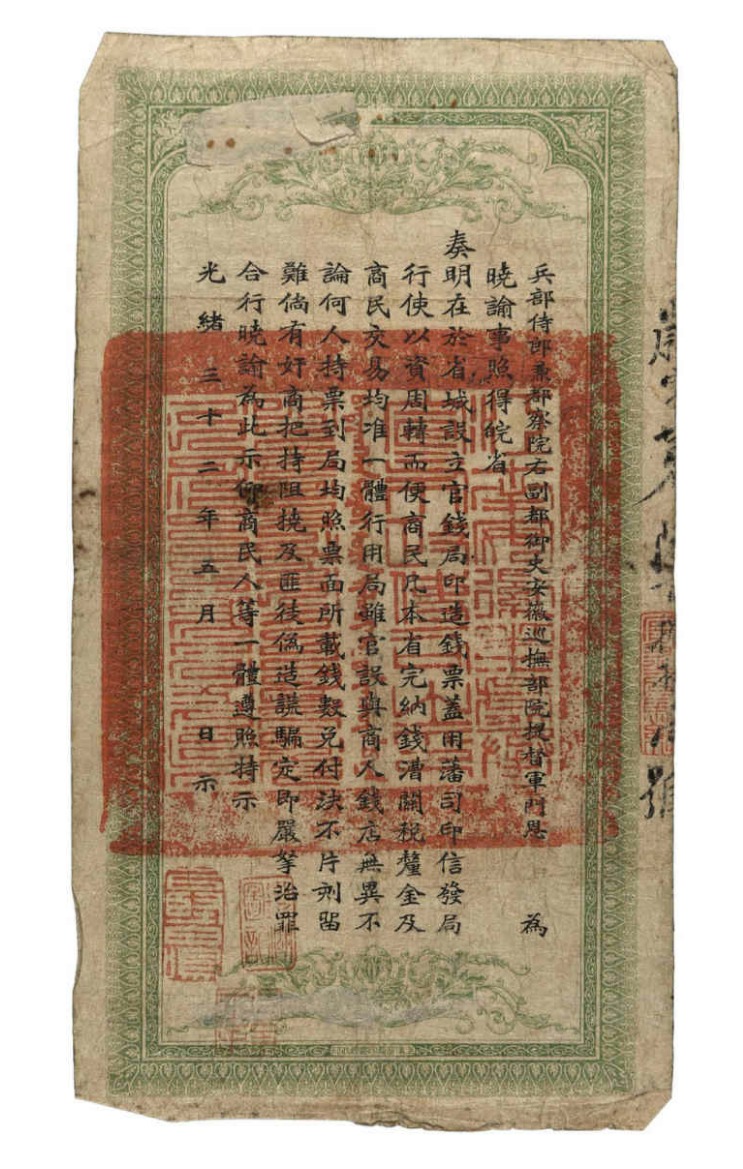 兵部侍郎兼都察院右副都御史安徽巡撫部院提督軍門恩　為
曉諭事照得皖省
奏明在於省城設立官錢局印造錢票蓋用藩司印信發局
行使以資周轉而便商民凡本省完納錢漕關稅釐金及
商民交易均准一體行用局雖官設與商人錢店無異不
論何人持票到局均照票面所載錢數兌付決不片刻留
難倘有奸商把持阻撓及匪徒偽造誆騙定即嚴拏治罪
合行曉諭為此示仰商民人等一體遵照特示
光緒三十二年五月　日示